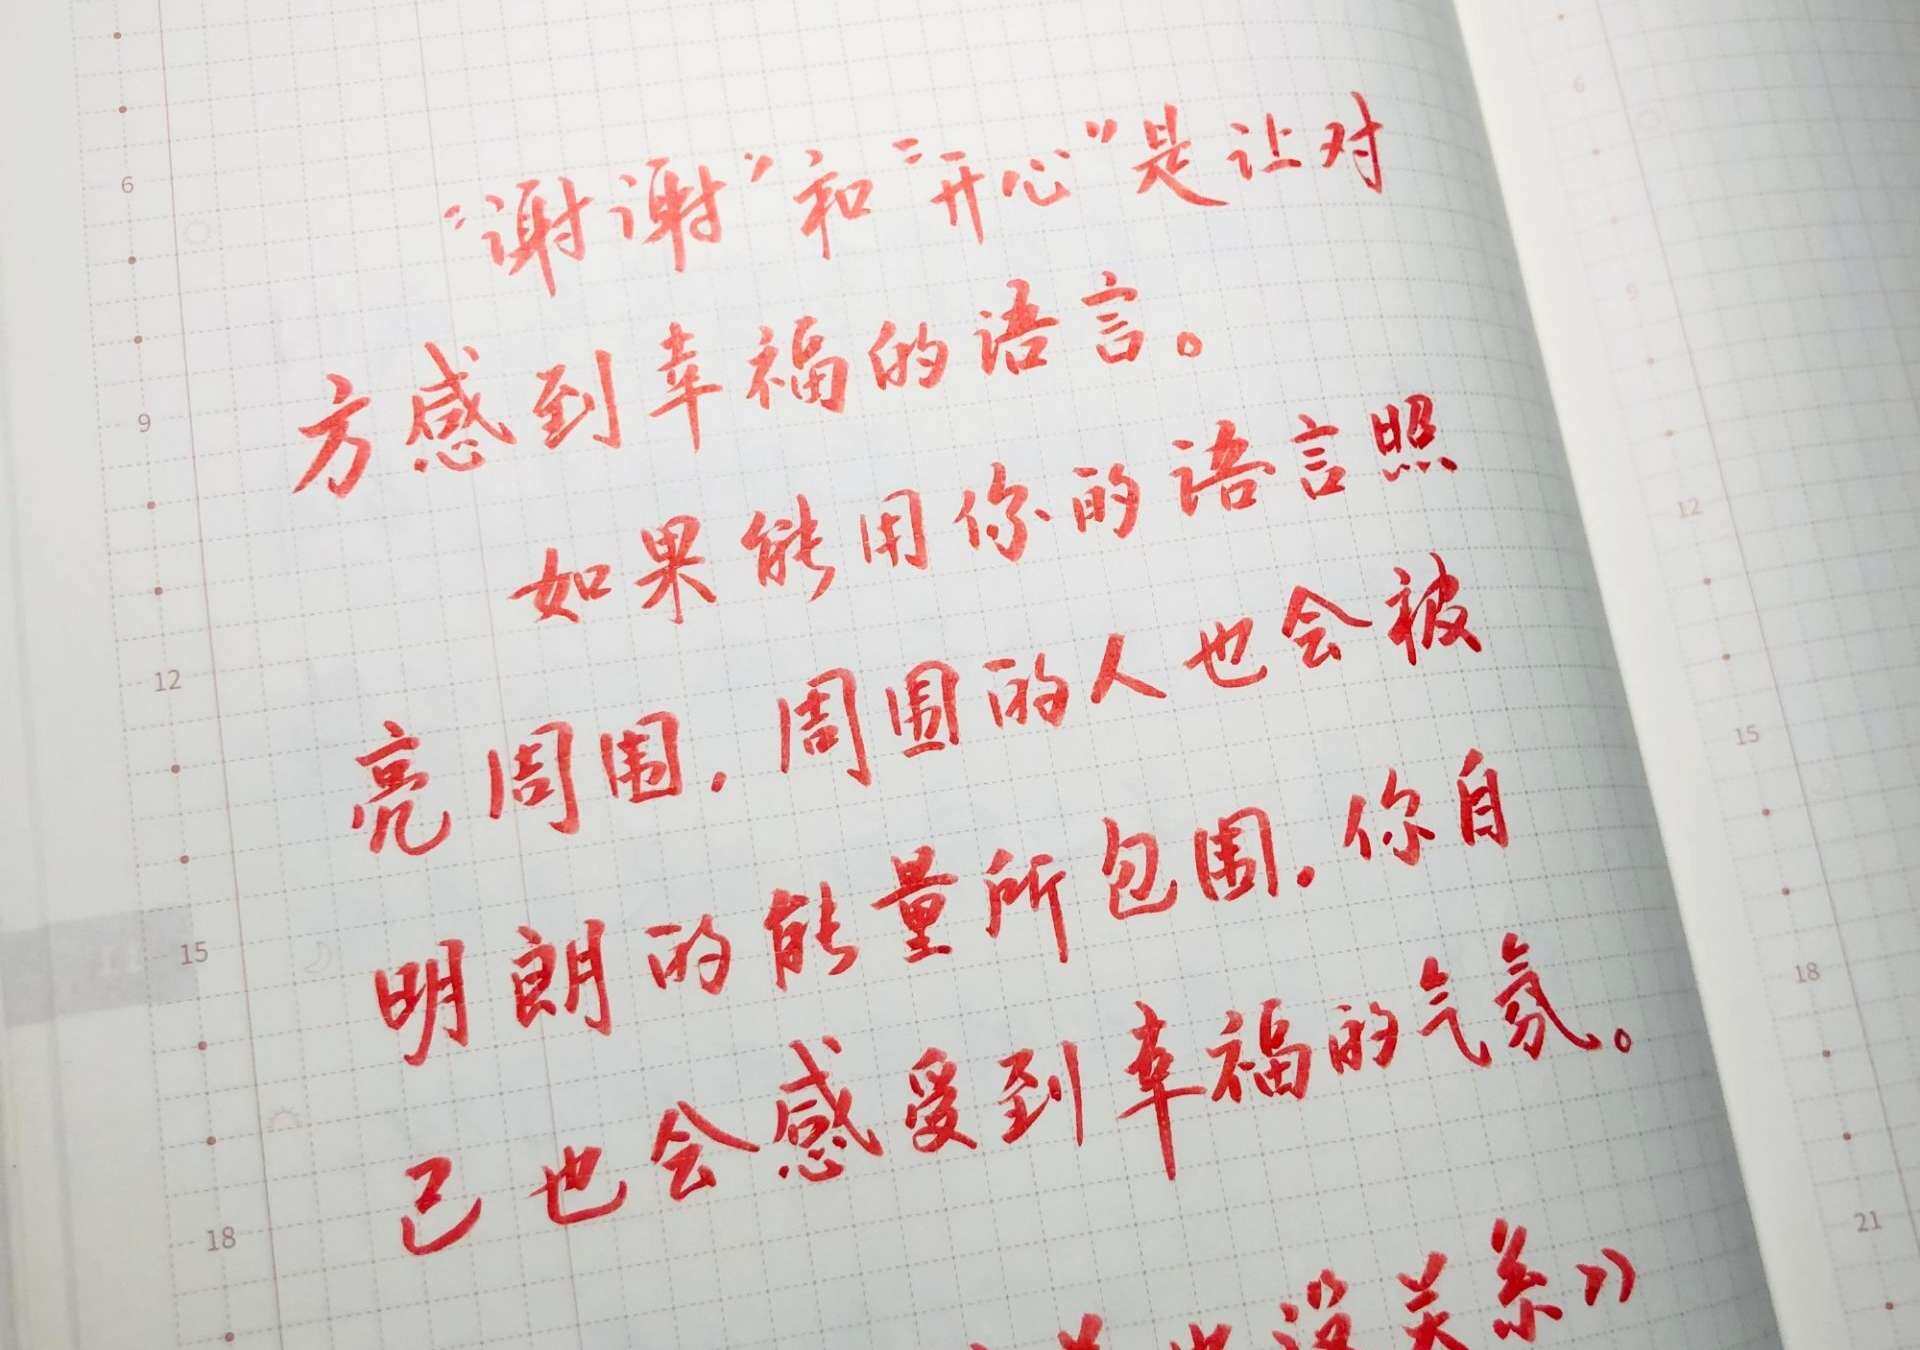 “谢谢”和“开心”是让对
方感到幸福的语言。
如果能用你的语言照
亮周围，周围的人也会被
明朗的能量所包围，你自
己也会感受到幸福的气氛。
也没关系》
6
9
12
15
18
6
9
12
15
18
21